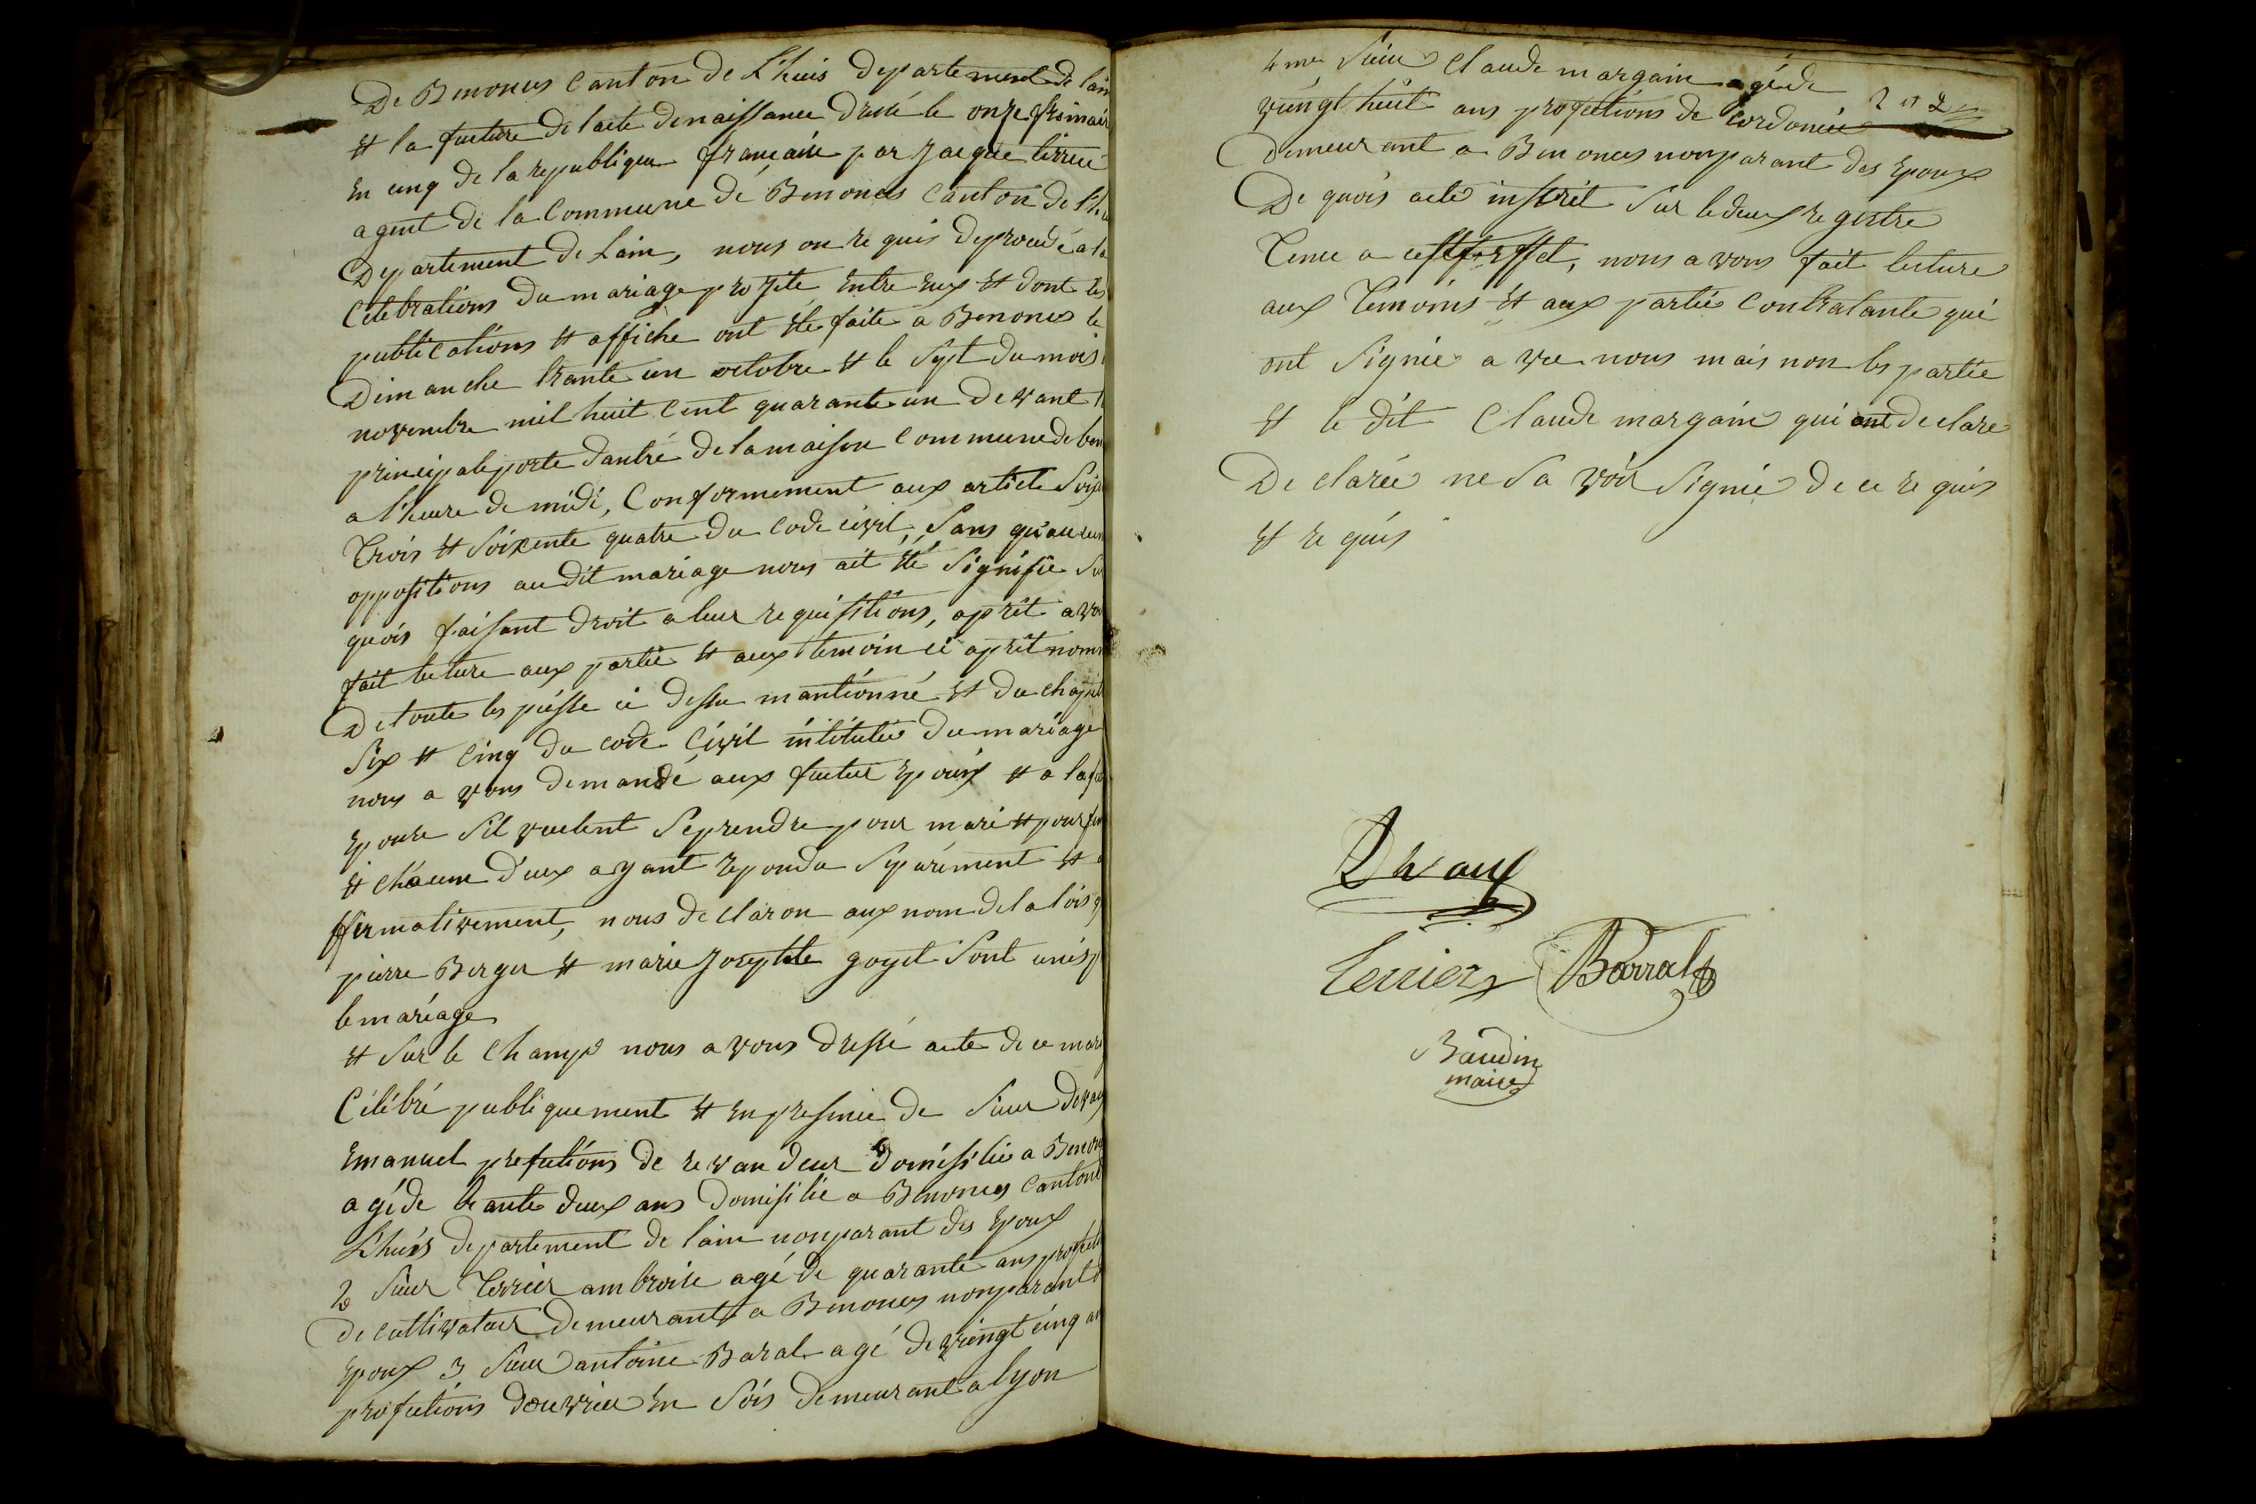 De Benonces Canton de L'huis departement de lain
et la future de lacte denaissance dressé le onze frimair
En cinq de la republique française par Jacque terrier
agent de la Commune de Benonces Canton de Lhu
Departement de Lain, nous on requis deproudé a la
Celebrations du mariage projité Entre Eux et dont les
publications et affiche ont été faite a Benonces le
Dimanche trante un octobre et le sept du mois
novembre mil huit cent quarante un devant l
principale porte dantré de la maison Commune de ben
a lheure de midi, Conformement aux article soix
Trois et soixente quatre du Code civil, sans qu'aucun
oppositions audit mariage nous ait été signifié su
quois faisant droit a leur requisitions, aprêt avoi
fait lecture aux partie et aux temoin ci aprêt nom
De toute les piesse ci dessu mantionné et du chapit
Six et cinq du code Civil intitulée du mariage
nous avons demandé aux futur Epoux et a la fu
Epouse sil veulent seprendre pour mari et pour fem
et chacun d'eux ayant repondu separément et a
ffirmativement, nous declaron aux nom de la lois q
pierre Berger et marie Josephte goyet sont unis p
le mariage
et sur le Champs nous avons dressé acte de ce mari
Célébré publiquement et En presence de sieur Devau
Emanuel profestions de revandeur domisilié a Benon
agé de trante deux ans domisilié a Benonces Canton d
L'huis departement de lain nonparant des Epoux
2 sieur Terrier ambroise agé de quarante ans profeti
De cultivateur demeurant a Benonces nonparant d
Epoux 3 sieur antoine Baral agé de vingt cinq an
profestions douvrier En sois demeurant a lyon
4me sieur Claude margain agé de
vingt huit ans profestions de Cordonnié
Demeurant a Benonces nonparant des Epoux
De quois acte inscrit sur le deux registre
Tenu a cest Effet, nous avons fait lecture
aux temoins et aux partie Contratante qui
ont signié avec nous mais non les partie
et le dit Claude margain qui ont declaré
Declarée ne savoir signié de ce requis
et requis
Devaux
Terrier Barral
Baudin
maire